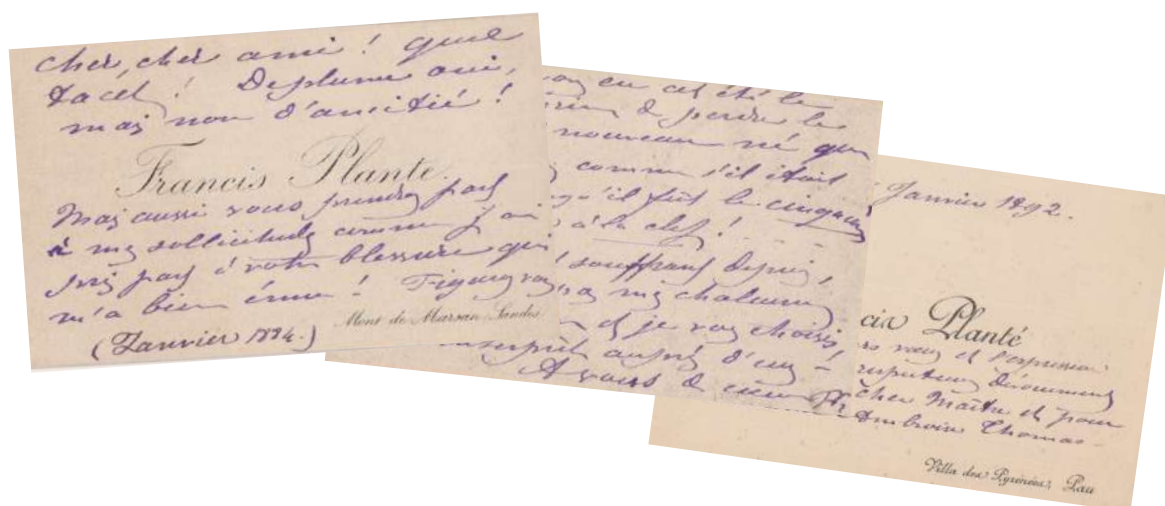 cher, cher ami ! quel
tacet ! De plume oui,
mais non d'amitié !
Francis Planté.
Mais aussi vous prendrez part
à ma sollicitude comme j'ai
pris part à votre blessure qui
m'a bien ému ! Figurez vous
(Janvier 1884.)
Mont de Marsan Landes
en cet été le
de perdre le
nouveau né que
comme s'il était
qu'il fût le cinquième
à la clef !
souffrant depuis,
mes chaleureux
et je vous choisis,
interprète auprès d'eux –
A vous de cœur
Janvier 1892.
cis Planté
vœux et l'expression
respectueux dévouement
cher Maître et pour
Ambroise Thomas –
Villa des Pyrénées, Pau